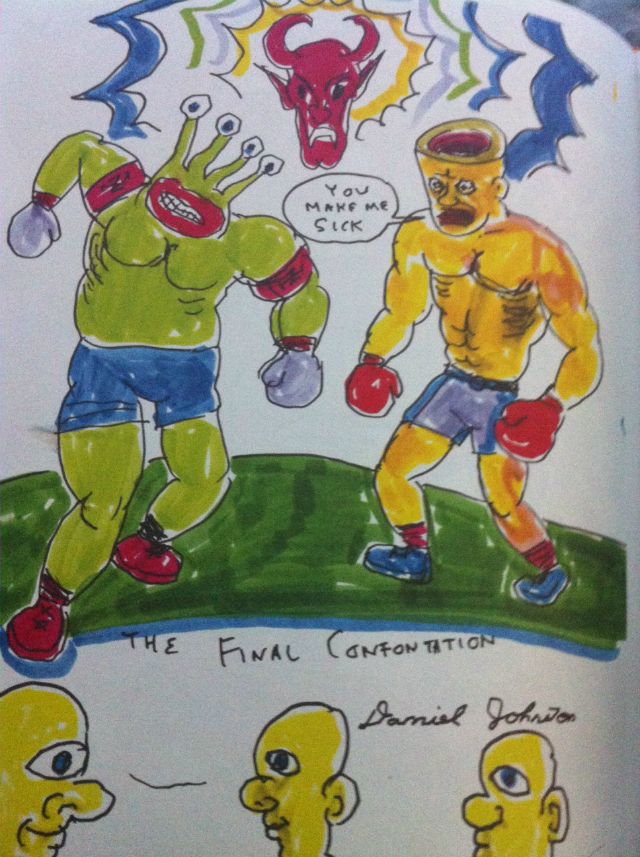 YOU
MAKE ME
SICK
THE FINAL CONFONTATION
Daniel Johnston